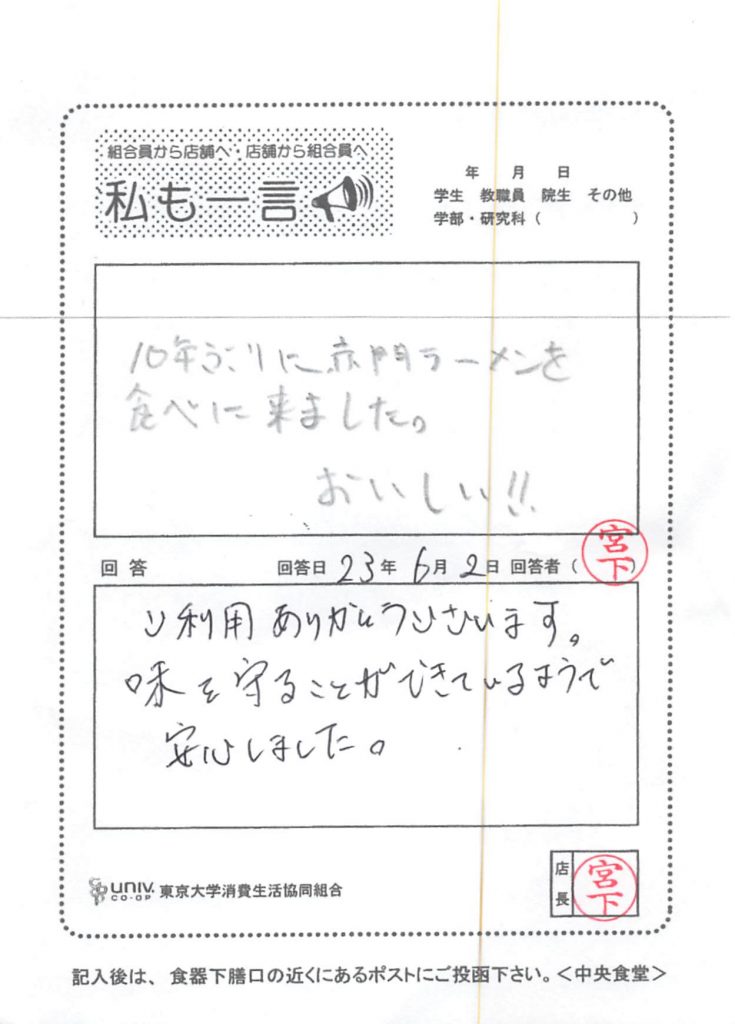 組合員から店舗へ・店舗から組合員へ
私も一言
年 月 日
学生 教職員 院生 その他
学部・研究科( )
10年ぶりに赤門ラーメンを
食べに来ました。
おいしい!!
回答 回答日 23年 6月 2日 回答者(宮下)
ご利用ありがとうございます。
味を守ることができているようで
安心しました。
店長 宮下
UNIV. CO-OP 東京大学消費生活協同組合
記入後は、食器下膳口の近くにあるポストにご投函下さい。<中央食堂>